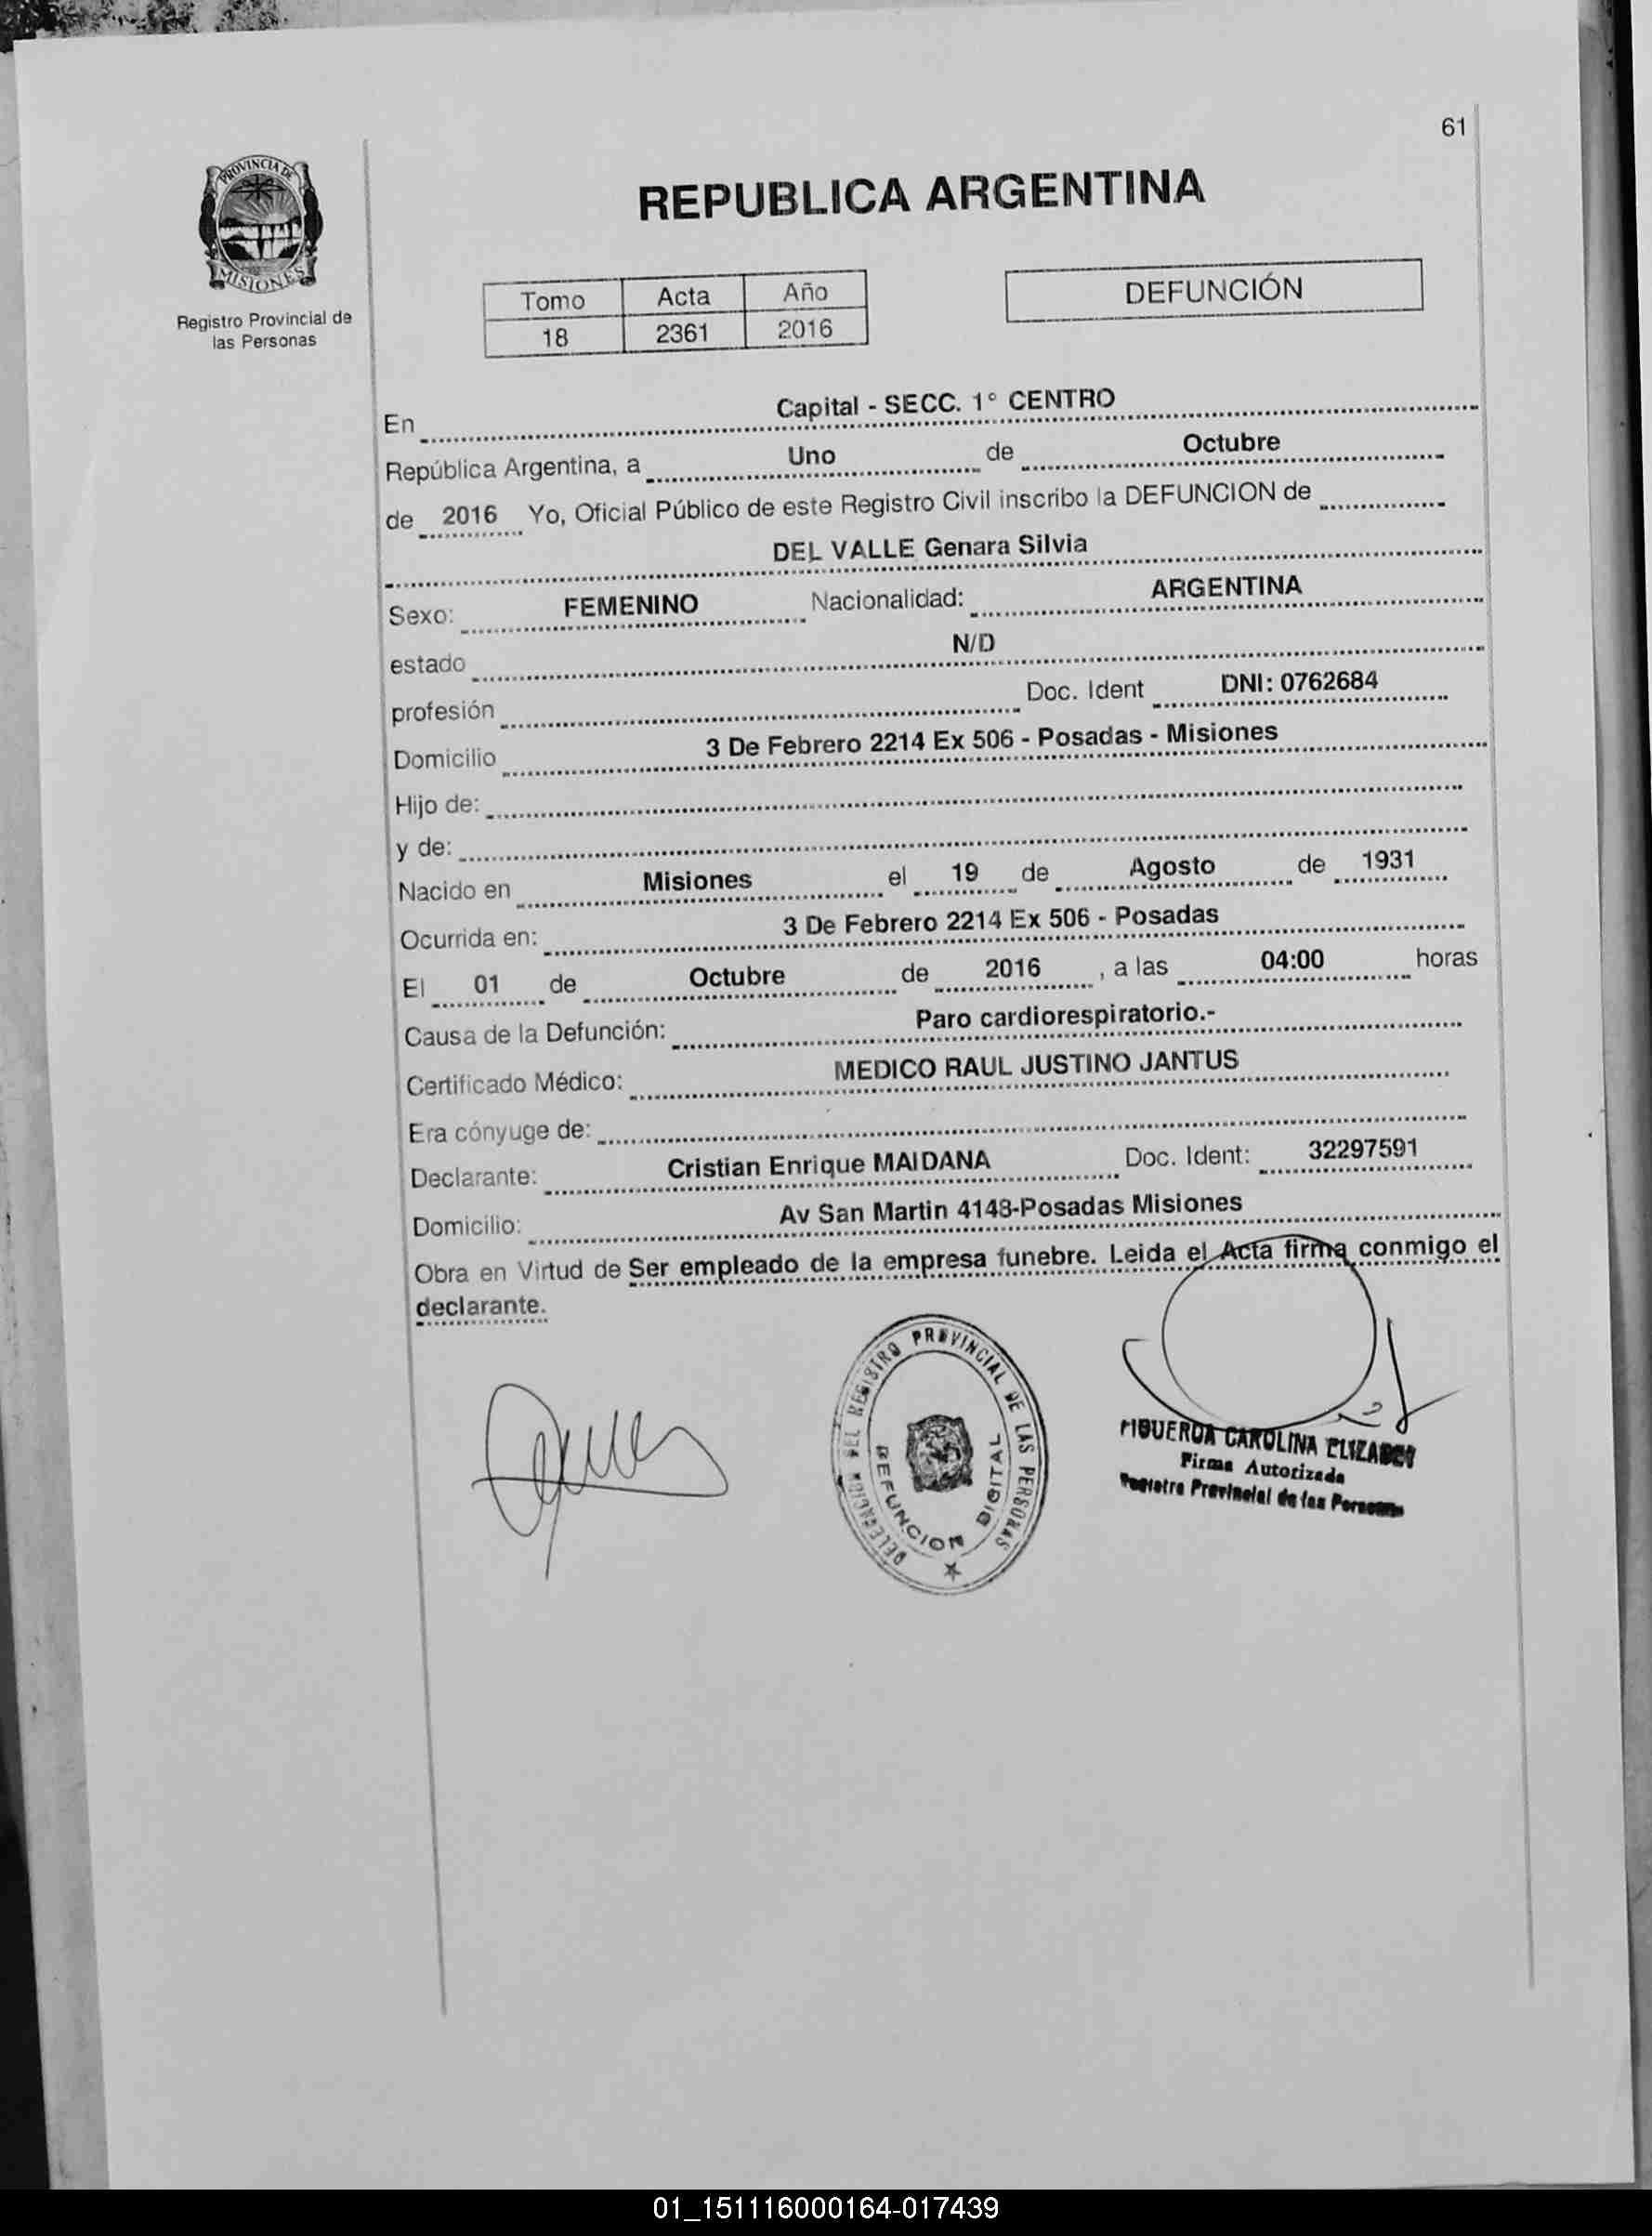 61
PROVINCIA DE
MISIONES
Registro Provincial de
las Personas
REPUBLICA ARGENTINA
Tomo Acta Año
18 2361 2016
DEFUNCIÓN
En Capital - SECC. 1° CENTRO
República Argentina, a Uno de Octubre
de 2016 Yo, Oficial Público de este Registro Civil inscribo la DEFUNCION de
DEL VALLE Genara Silvia
Sexo: FEMENINO Nacionalidad: ARGENTINA
estado N/D
profesión Doc. Ident DNI: 0762684
Domicilio 3 De Febrero 2214 Ex 506 - Posadas - Misiones
Hijo de:
y de:
Nacido en Misiones el 19 de Agosto de 1931
Ocurrida en: 3 De Febrero 2214 Ex 506 - Posadas
El 01 de Octubre de 2016 , a las 04:00 horas
Causa de la Defunción: Paro cardiorespiratorio.-
Certificado Médico: MEDICO RAUL JUSTINO JANTUS
Era cónyuge de:
Declarante: Cristian Enrique MAIDANA Doc. Ident: 32297591
Domicilio: Av San Martin 4148-Posadas Misiones
Obra en Virtud de Ser empleado de la empresa funebre. Leida el Acta firma conmigo el
declarante.
DELEGACION DEL REGISTRO PROVINCIAL DE LAS PERSONAS
DEFUNCION DIGITAL
FIGUEROA CAROLINA
Firma Autorizada
Registro Provincial de las Personas
01_151116000164-017439